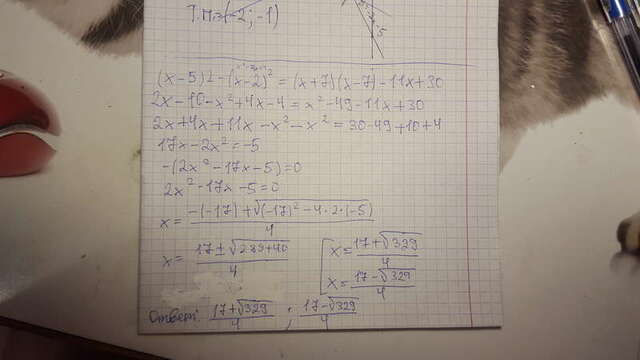 (x-5)2-(x-2)² = (x+7)(x-7)-11x+30
2x-10-x²+4x-4=x²-49-11x+30
2x+4x+11x-x²-x²=30-49+10+4
17x-2x²=-5
-(2x²-17x-5)=0
2x²-17x-5=0
x= -(-17)±√(-17)²-4·2·(-5) / 4
x= 17±√289+40 / 4
x= 17+√329 / 4
x= 17-√329 / 4
Ответ: 17+√329 / 4 ; 17-√329 / 4